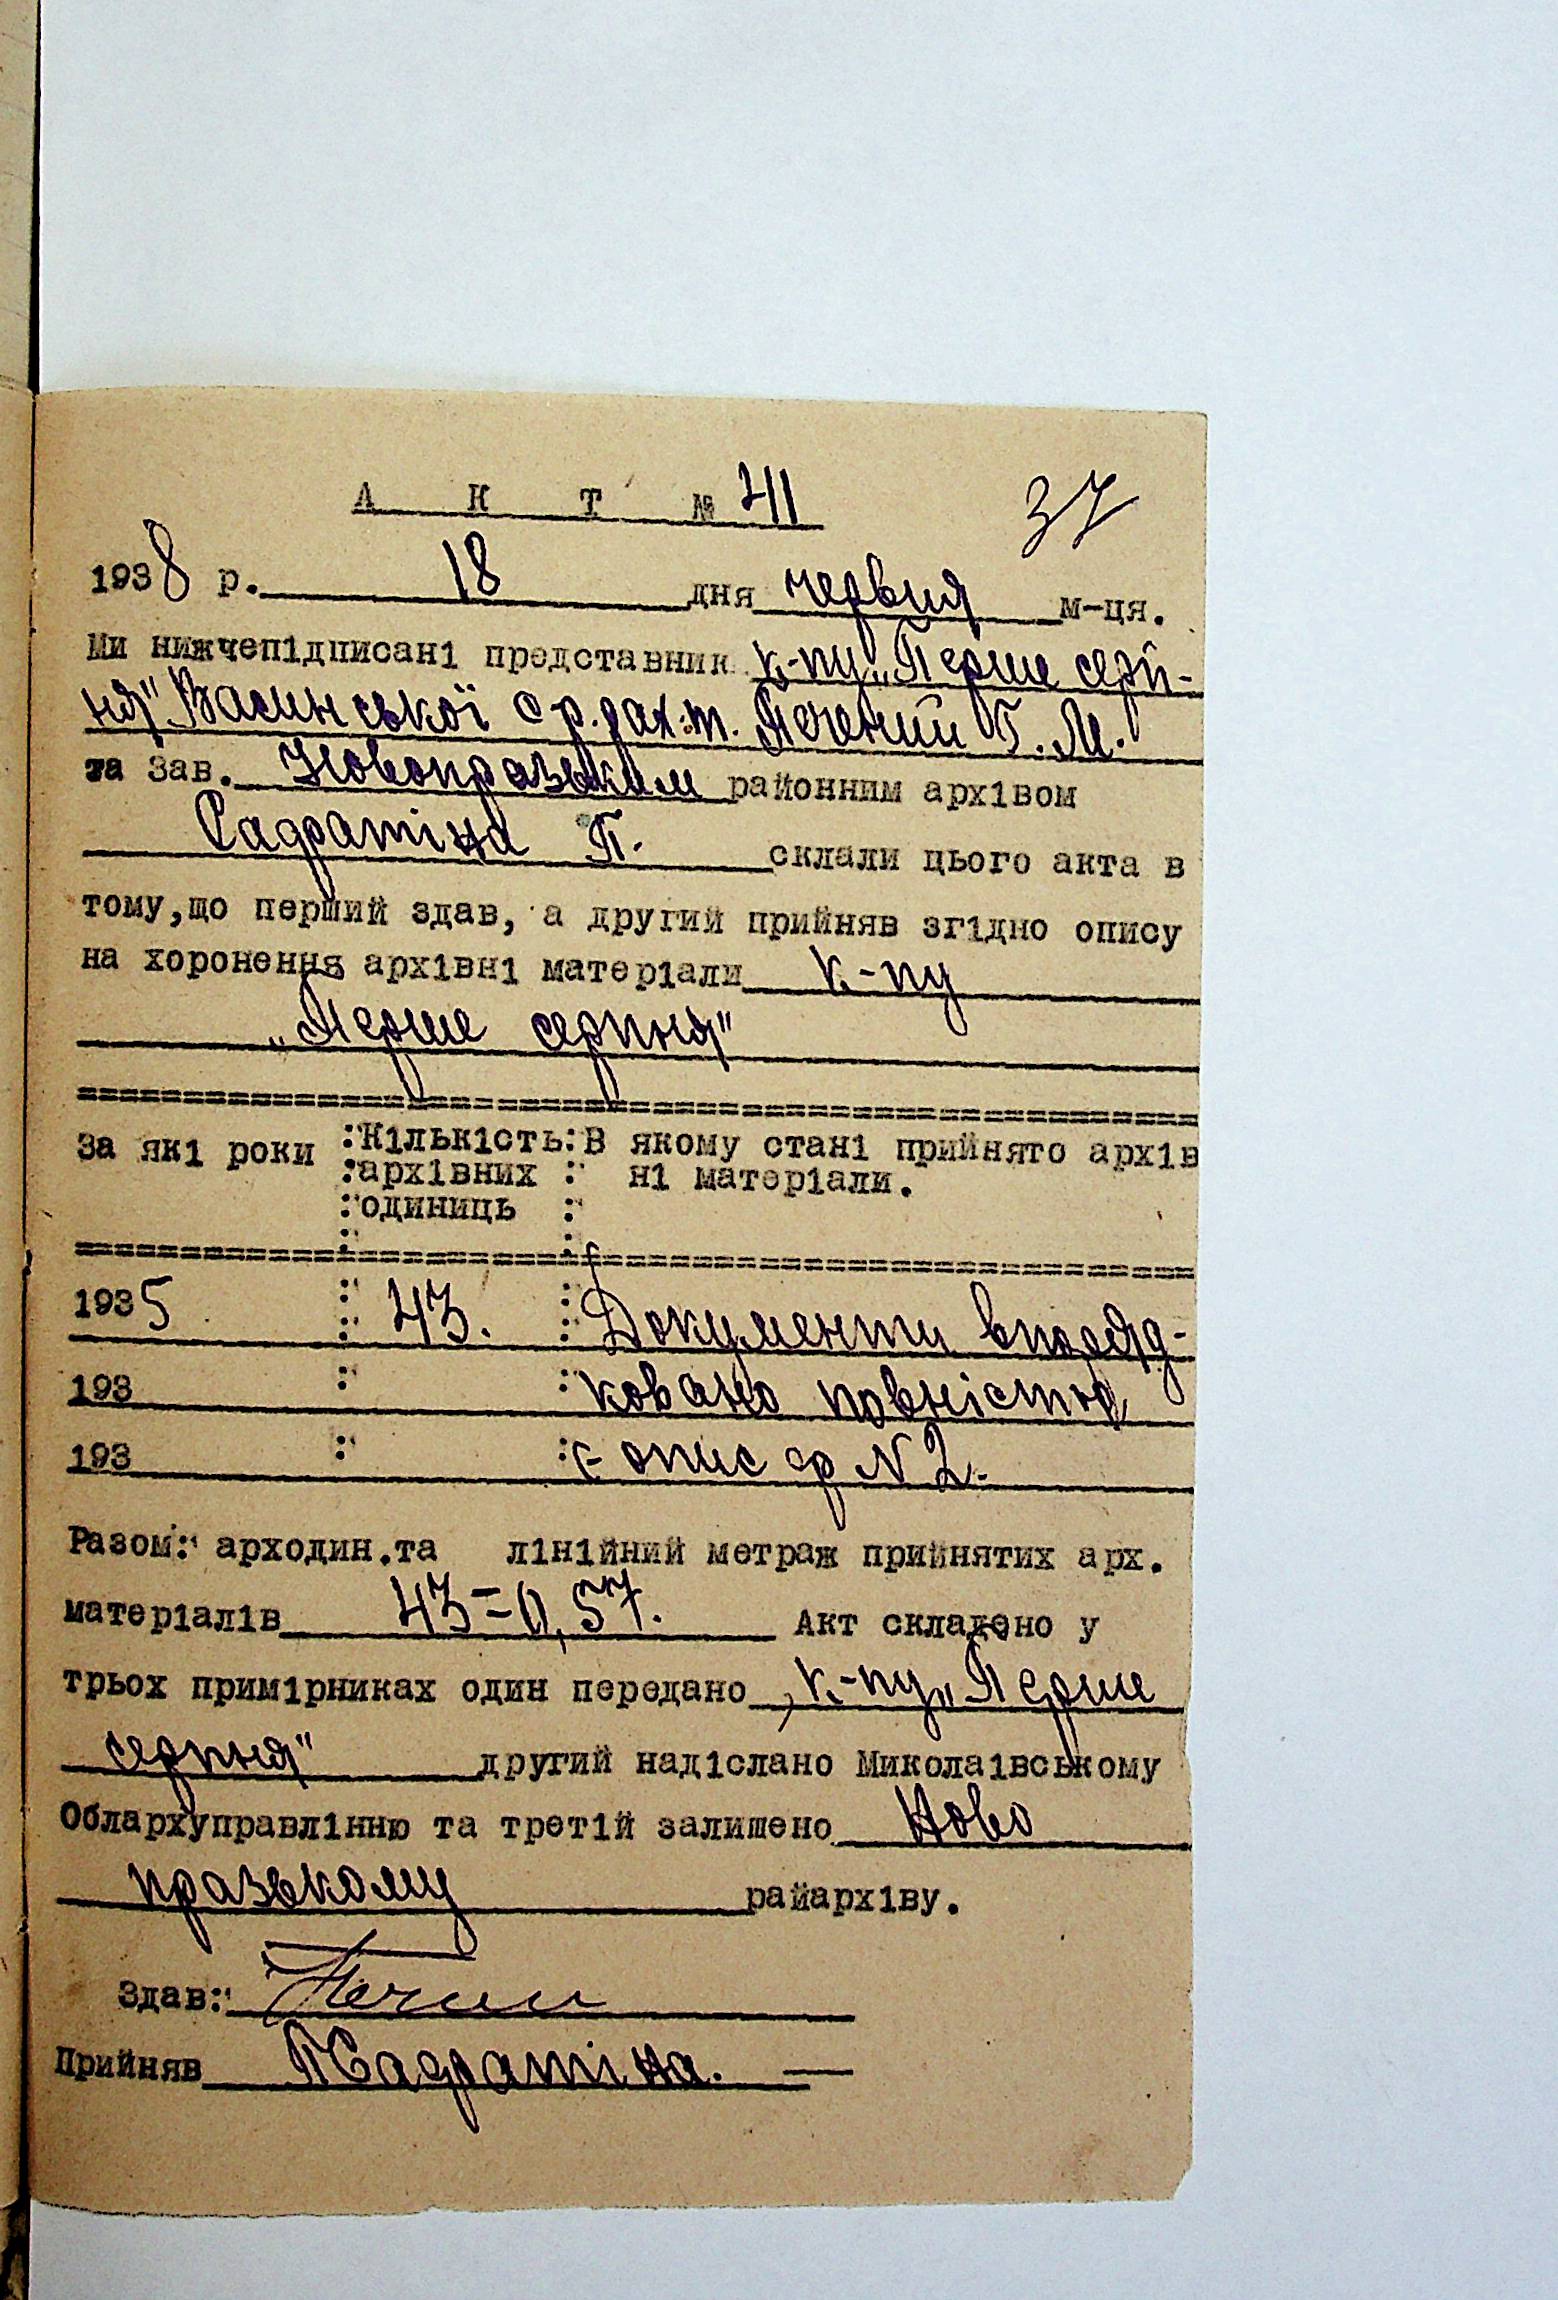 А К Т № 41
37
1938 р. 18 дня червня м-ця.
Ми нижчепідписані представник к-пу „Перше серп-
ня" Васинської с/р. рах: т. Печений Г. М.
та Зав. Новопразьким районним архівом
Садратіна П. склали цього акта в
тому, що перший здав, а другий прийняв згідно опису
на хоронення архівні матеріали к-пу
„Перше серпня"
За які роки : Кількість : В якому стані прийнято архів
: архівних : ні матеріали.
: одиниць :
1935 : 43. : Документи впоряд-
193 : : ковано повністю
193 : : є опис ф N 2.
Разом: арходин. та лінійний метраж прийнятих арх.
матеріалів 43=0,57. Акт складено у
трьох примірниках один передано к-пу „Перше
серпня" другий надіслано Миколаівському
Облархуправлінню та третій залишено Ново
празькому райархіву.
Здав:
Прийняв ПСадратіна.